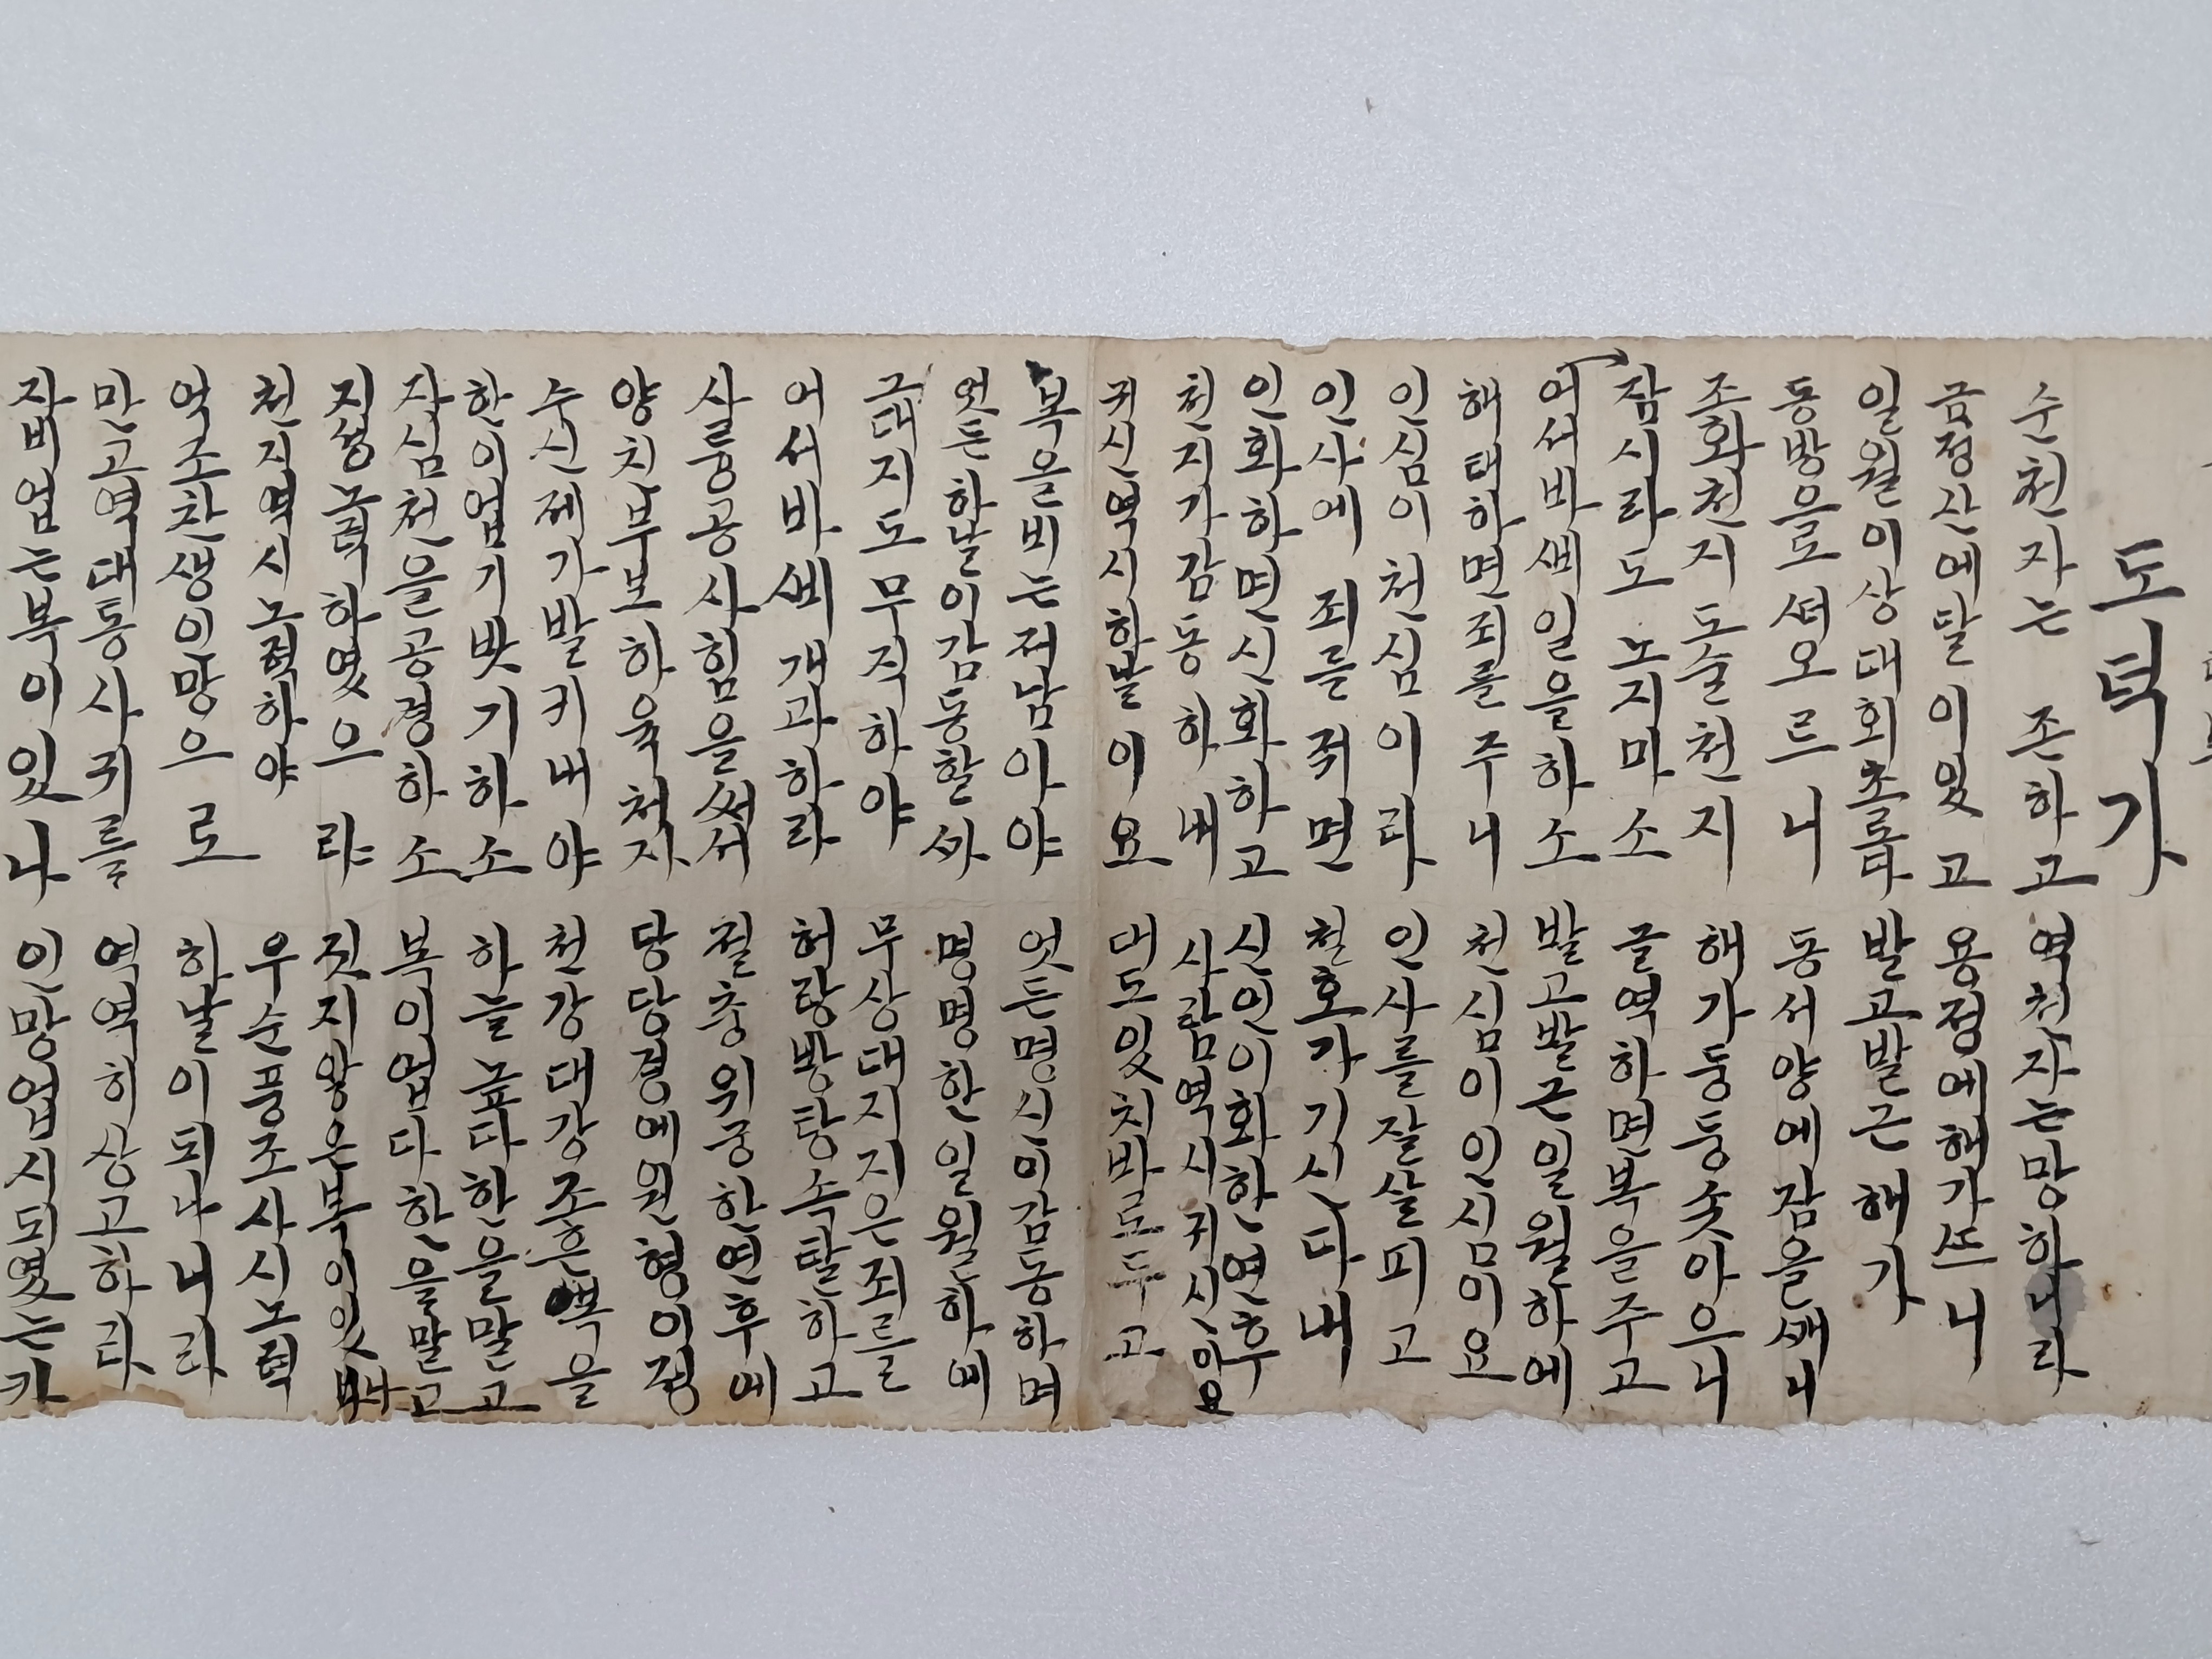 도덕기
수천자는 존하고 역천자는망하니라
금정산에달이있고 용정에해가뜨니
일월이상대회초롭다 발고발근해가
동방을도셔오르니 동서양에잠을깨니
조화천지도술천지 해가둥둥솟아으니
잠시라도노지마소 글역하면복을주고
어서바쎄일을하소 발고발근일월하에
해태하면죄를주니 천심이인심이요
인심이천심이라 인사를잘살피고
인사에죄를줘면 천호가기시다내
인화하면신화하고 신인이화한연후
천지가감동하내 사람역시귀시이요
귀신역시하날이요 대도잇치바로두고
복을비는저남아야 엇든명신이감동하며
엇든하날이감동할싸 명명한일월하에
그대지도무직하야 무상대지지은죄를
어서바쎄개과하라 허랑방탕속탈하고
사롱공사힘을써서 절충위궁한연후에
양친부보하육처자 당당경에원형이정
수신제가발키내야 천강대강조흔복을
한이업기밧기하소 하늘높다한을말고
자심천을공경하소 복이업다한을말고
지생노력하엿으랴 짓지왕은복이잇나
천지역시노력하야 우순풍조사시노력
억조찬생의망으로 하날이되나니라
만고역대통사귀를 역역히상고하다
자비업는복이있나 인망업시되엿는가